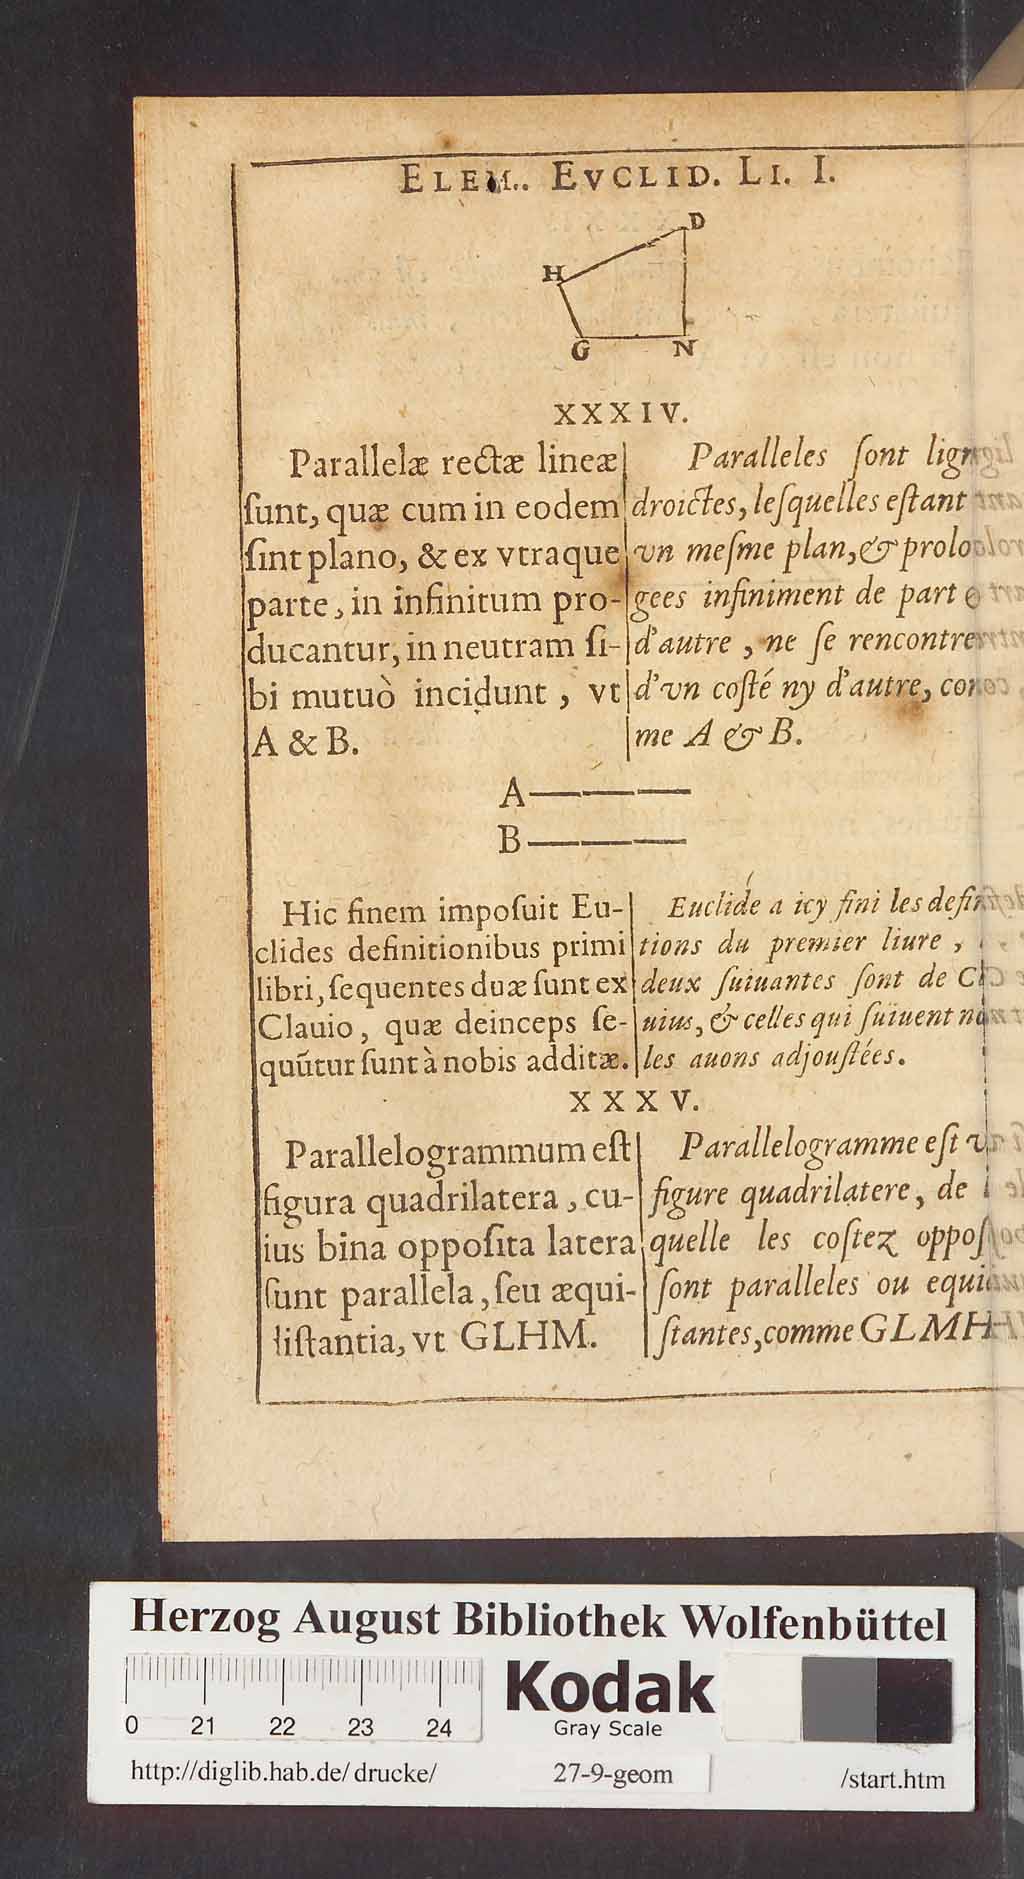 ELEM. EVCLID. LI. I.
D
H
G N
XXXIV.
Parallelæ rectæ lineæ
ſunt, quæ cum in eodem
ſint plano, & ex vtraque
parte, in infinitum pro-
ducantur, in neutram ſi-
bi mutuò incidunt, vt
A & B.
Paralleles ſont lig
droictes, leſquelles eſtant
vn meſme plan, & prolo
gees infiniment de part
d'autre, ne ſe rencontre
d'vn coſté ny d'autre, co
me A & B.
A
B
Hic finem impoſuit Eu-
clides definitionibus primi
libri, ſequentes duæ ſunt ex
Clauio, quæ deinceps ſe-
quũtur ſunt à nobis additæ.
Euclide a icy fini les defi
tions du premier liure,
deux ſuiuantes ſont de C
uius, & celles qui ſuiuent
les auons adjouſtées.
XXXV.
Parallelogrammum eſt
figura quadrilatera, cu-
ius bina oppoſita latera
ſunt parallela, ſeu æqui-
diſtantia, vt GLHM.
Parallelogramme eſt
figure quadrilatere, de
quelle les coſtez oppoſ
ſont paralleles ou equi
ſtantes, comme GLMH
Herzog August Bibliothek Wolfenbüttel
0 21 22 23 24
Kodak
Gray Scale
http://diglib.hab.de/drucke/ 27-9-geom /start.htm